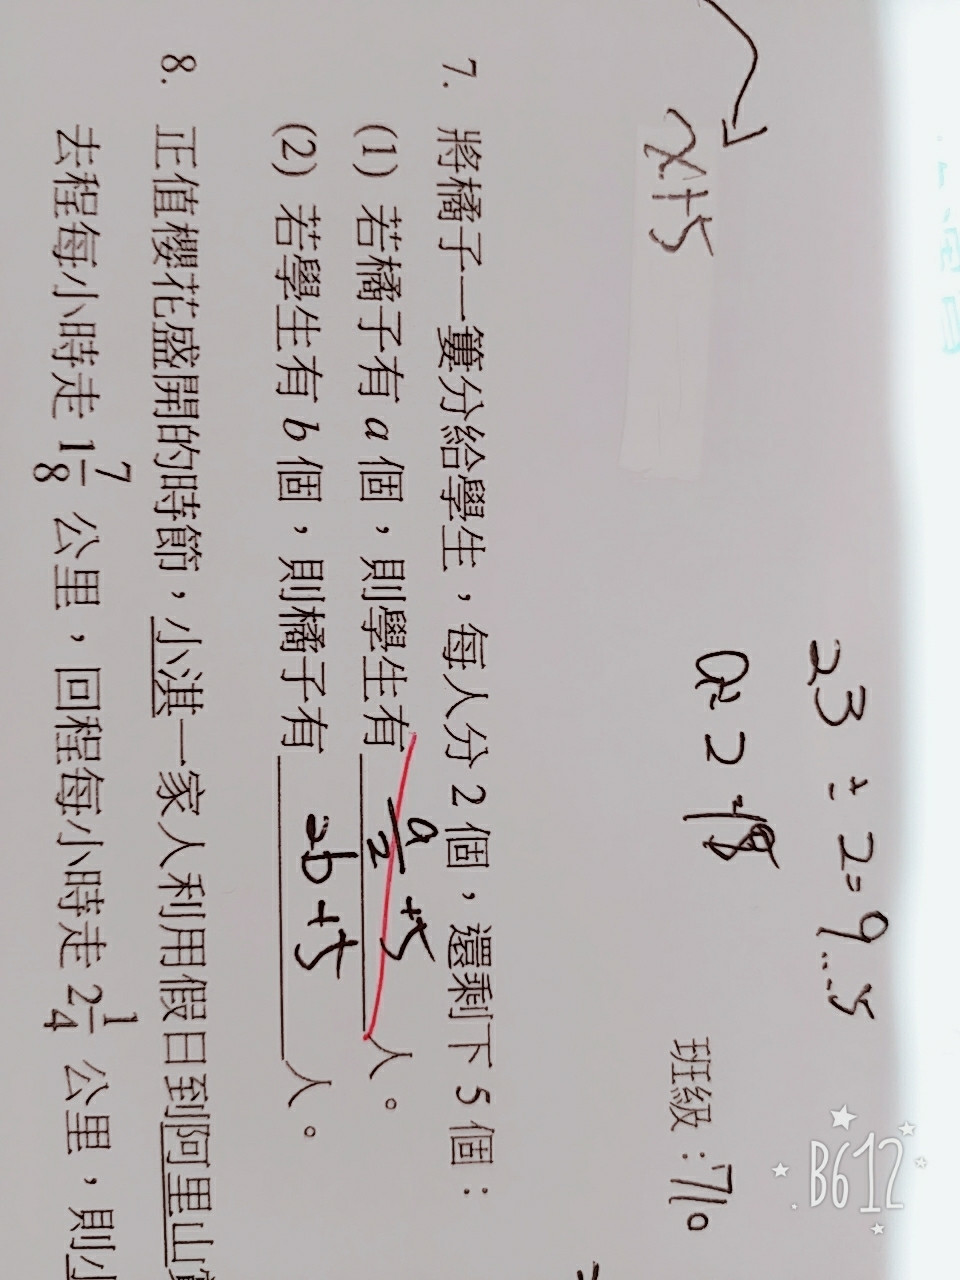 23 ÷ 2 = 9...5
a ÷ 2
班級：710
x+5
7. 將橘子一簍分給學生，每人分2個，還剩下5個：
(1) 若橘子有a個，則學生有 a/2 +5 人。
(2) 若學生有b個，則橘子有 2b+5 人。
8. 正值櫻花盛開的時節，小淇一家人利用假日到阿里山
去程每小時走1 7/8 公里，回程每小時走2 1/4 公里，則小
B612